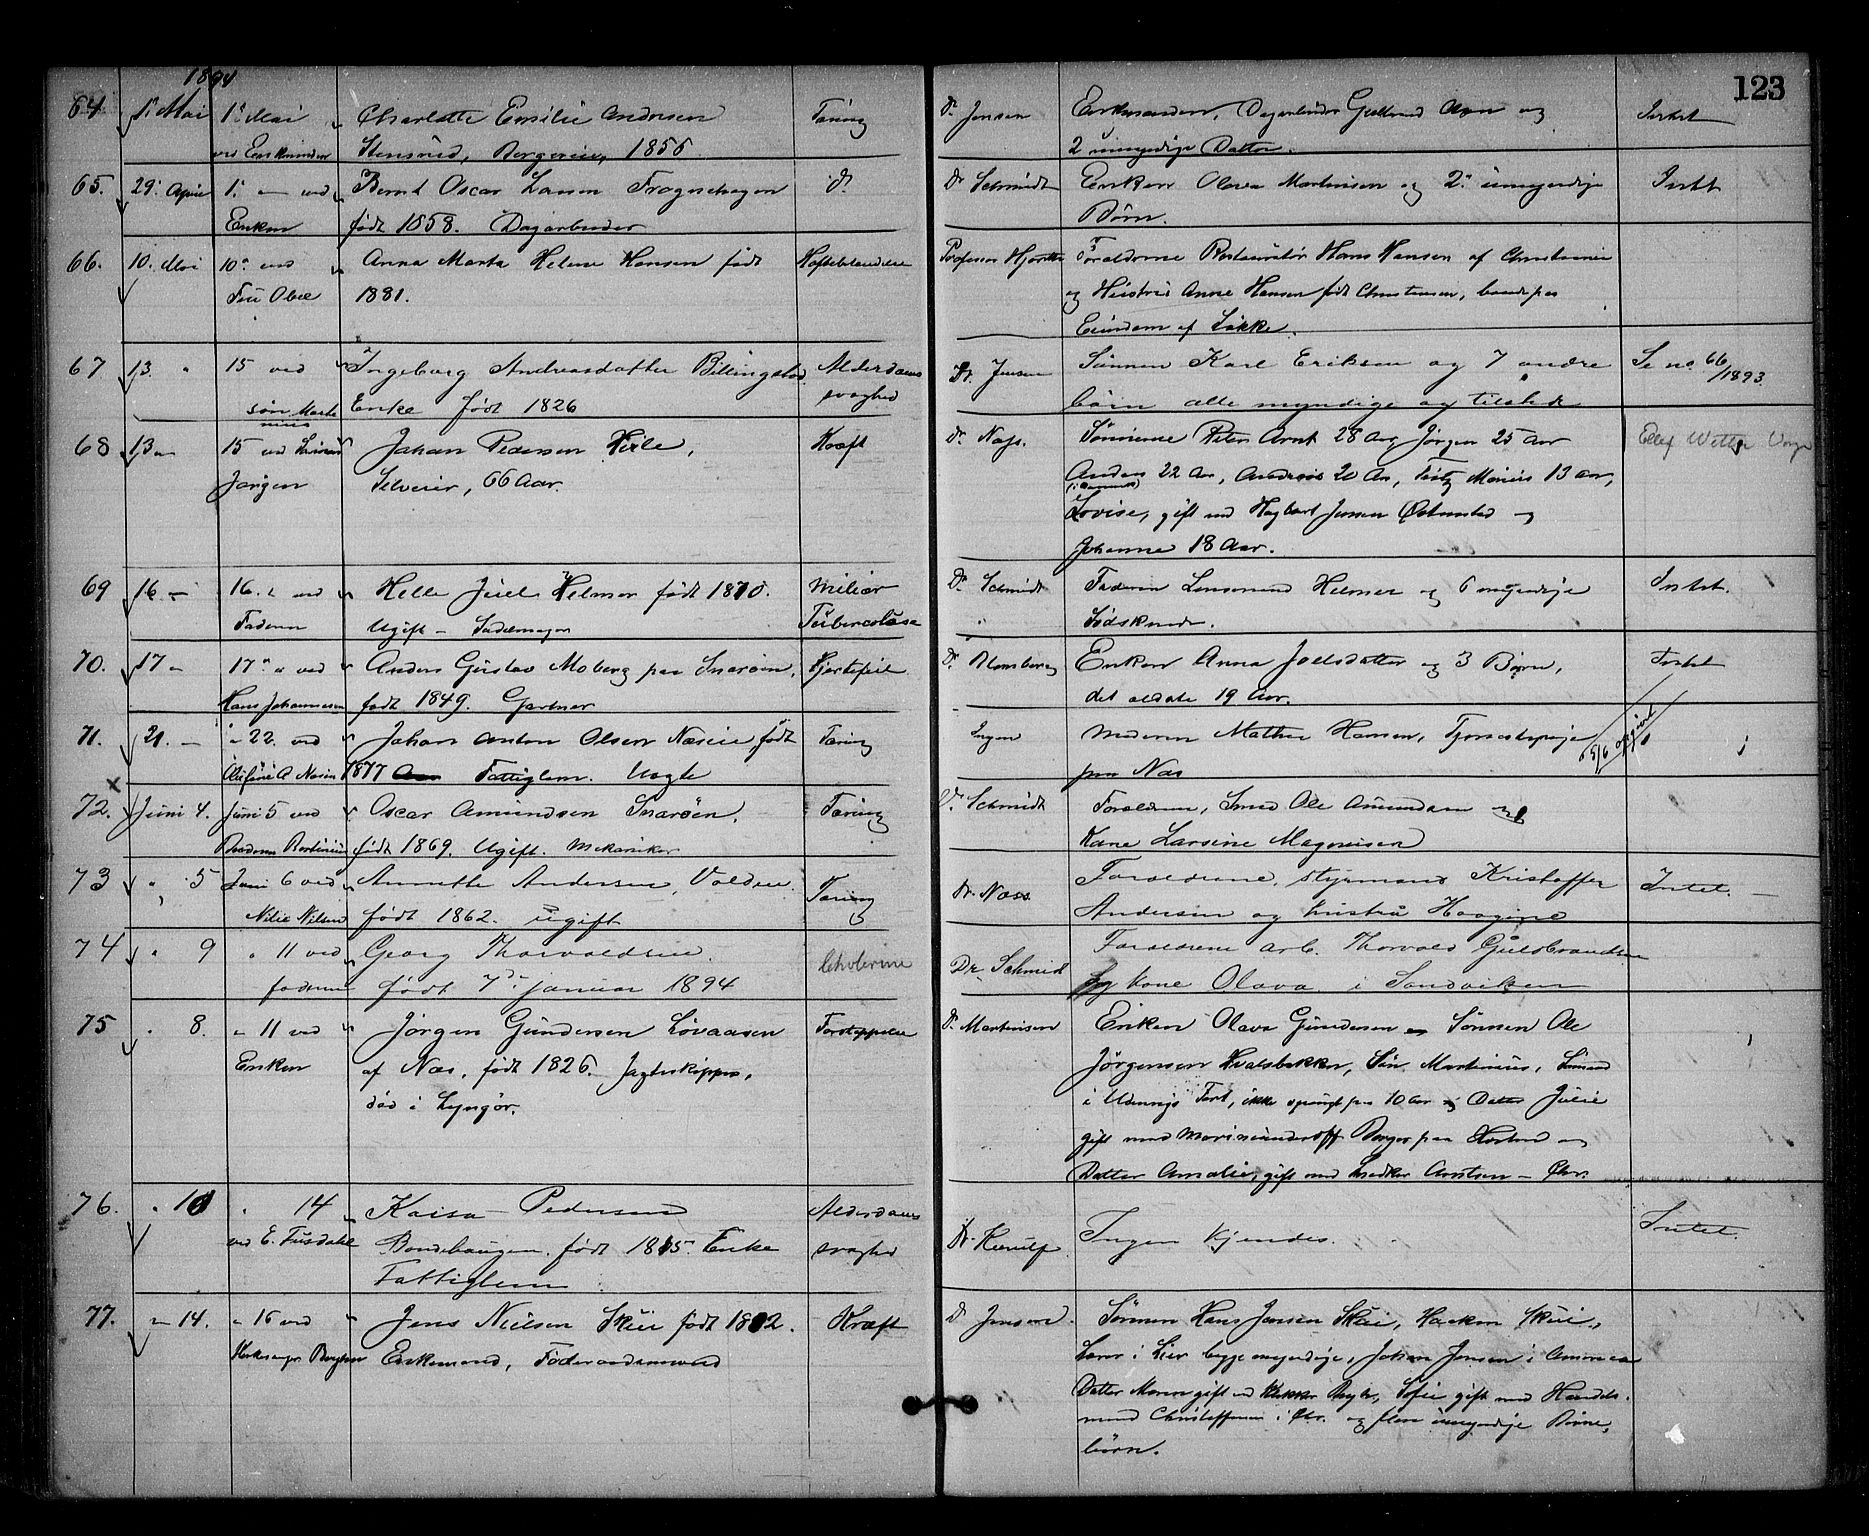 123
1894
64. 1' Mai 1' Mai Charlotte Emilie Andresen Tæring Dr Jensen Enkemanden, Dagarbeider Gulbrand og Intet
ved Enkemanden Stensrud, Bergerveien, 1856 2 umyndige Døttre.
65. 29' April 1' — ved Bernt Oscar Larsen Frognehagen do Dr Schmidt Enken Olava Martinsen og 2 umyndige Intet
Enken født 1858. Dagarbeider Børn.
66. 10. Mai 10' ved Anna Marta Helene Hansen født Hoftebetændelse Professor Hjort Forældrene Restauratør Hans Hansen af Christiania
Fru Obel 1881. og Hustru Anne Hansen født Christensen, boende paa
Eiendom af Løkke.
67 13. " 15 ved Ingeborg Andreasdatter Billingstad Alderdoms Dr. Jensen Sønnen Karl Eriksen og 7 andre Se no 66/1893.
søn Martinius Enke født 1826 svaghed børn alle myndige og tilstede
68 13 — 15 ved Johan Pedersen Kræft Dr. Næss. Sønnerne Peter Arnt 28 Aar, Jørgen 25 Aar
Jørgen Selveier, 66 Aar. Anders 22 Aar, Andreas 20 Aar, Marius 13 aar,
Lovise, gift med Hagbart Jensen og
Johanne 18 Aar.
69 16 — 16. " ved Helle Juel Helmer født 1870. Miliær Dr. Schmidt Faderen Lensmand Helmer og 6 myndige Intet.
Faderen Ugift — Sadelmager Tuberculose Sødskende.
70. 17 — 17 " ved Anders Gustav Moberg paa Snarøen, Hjertefeil Dr. Blomberg Enken Anna Joelsdatter og 3 Børn, Intet
Hans Johannesen født 1849. Gartner det ældste 19 Aar.
71. 21. — " 22. ved Johan Anton Olsen Næsvie, født Tæring Ingen Moderen Mathea Hansen, Tjenestepige opgivet
1877 Fattiglem. Ugift paa Næs
72. Juni 4. Juni 5 ved Oscar Amundsen Snarøen. Tæring Dr. Schmidt Forældrene, Smed Ole Amundsen og
Broderen født 1869. Ugift. Mekaniker Kone Larsine Magnusen
73 " 5 Juni 6 ved Annette Andersen, Volden. Tæring Dr. Næss Forældrene, styrmand Kristoffer Intet. —
Nilie Nilsen født 1862. ugift Andersen og hustru
74 " 9 " 11 ved Georg Thorvaldsen. Cholerine Dr. Schmidt Forældrene arb. Thorvald Guldbrandsen
faderen født 7de januar 1894 og kone Olava i Sandviken
75 " 8. " 11 ved Jørgen Gundersen Løvaasen Forstoppelse Dr. Martinsen Enken Olava Gundersen og Sønnen Ole
Enken af Næs, født 1826. Jagteskipper, Jørgensen Hvalsbakken, Søn Martinius, Sømand
død i Lyngør. i Udenrigs Fart, ikke spurgt paa 10 Aar og Datter Julie
gift med Marineunderoff Berger paa Horten og
Datter Amalie, gift med Snedker Arntsen — Chr.
76. " 10 " 14 Kaisa Pedersen Alderdoms Dr. Kierulf Ingen kjendes. Intet.
ved E. Tusdahl Bondehaugen. født 1815. Enke svaghed
Fattiglem
77. " 14. " 16 ved Jens Nielsen Skui født 1802. Kræft Dr Jensen. Sønnen Hans Jensen Skui, Haakon Skui,
Enkemand, Føderaadsmand Lærer i Lier begge myndige, Johan Jensen i Amerika
Datter Maren gift med Sofie gift med Handels-
mand Christoffersen i Chr. og flere umyndige Børne,
børn.